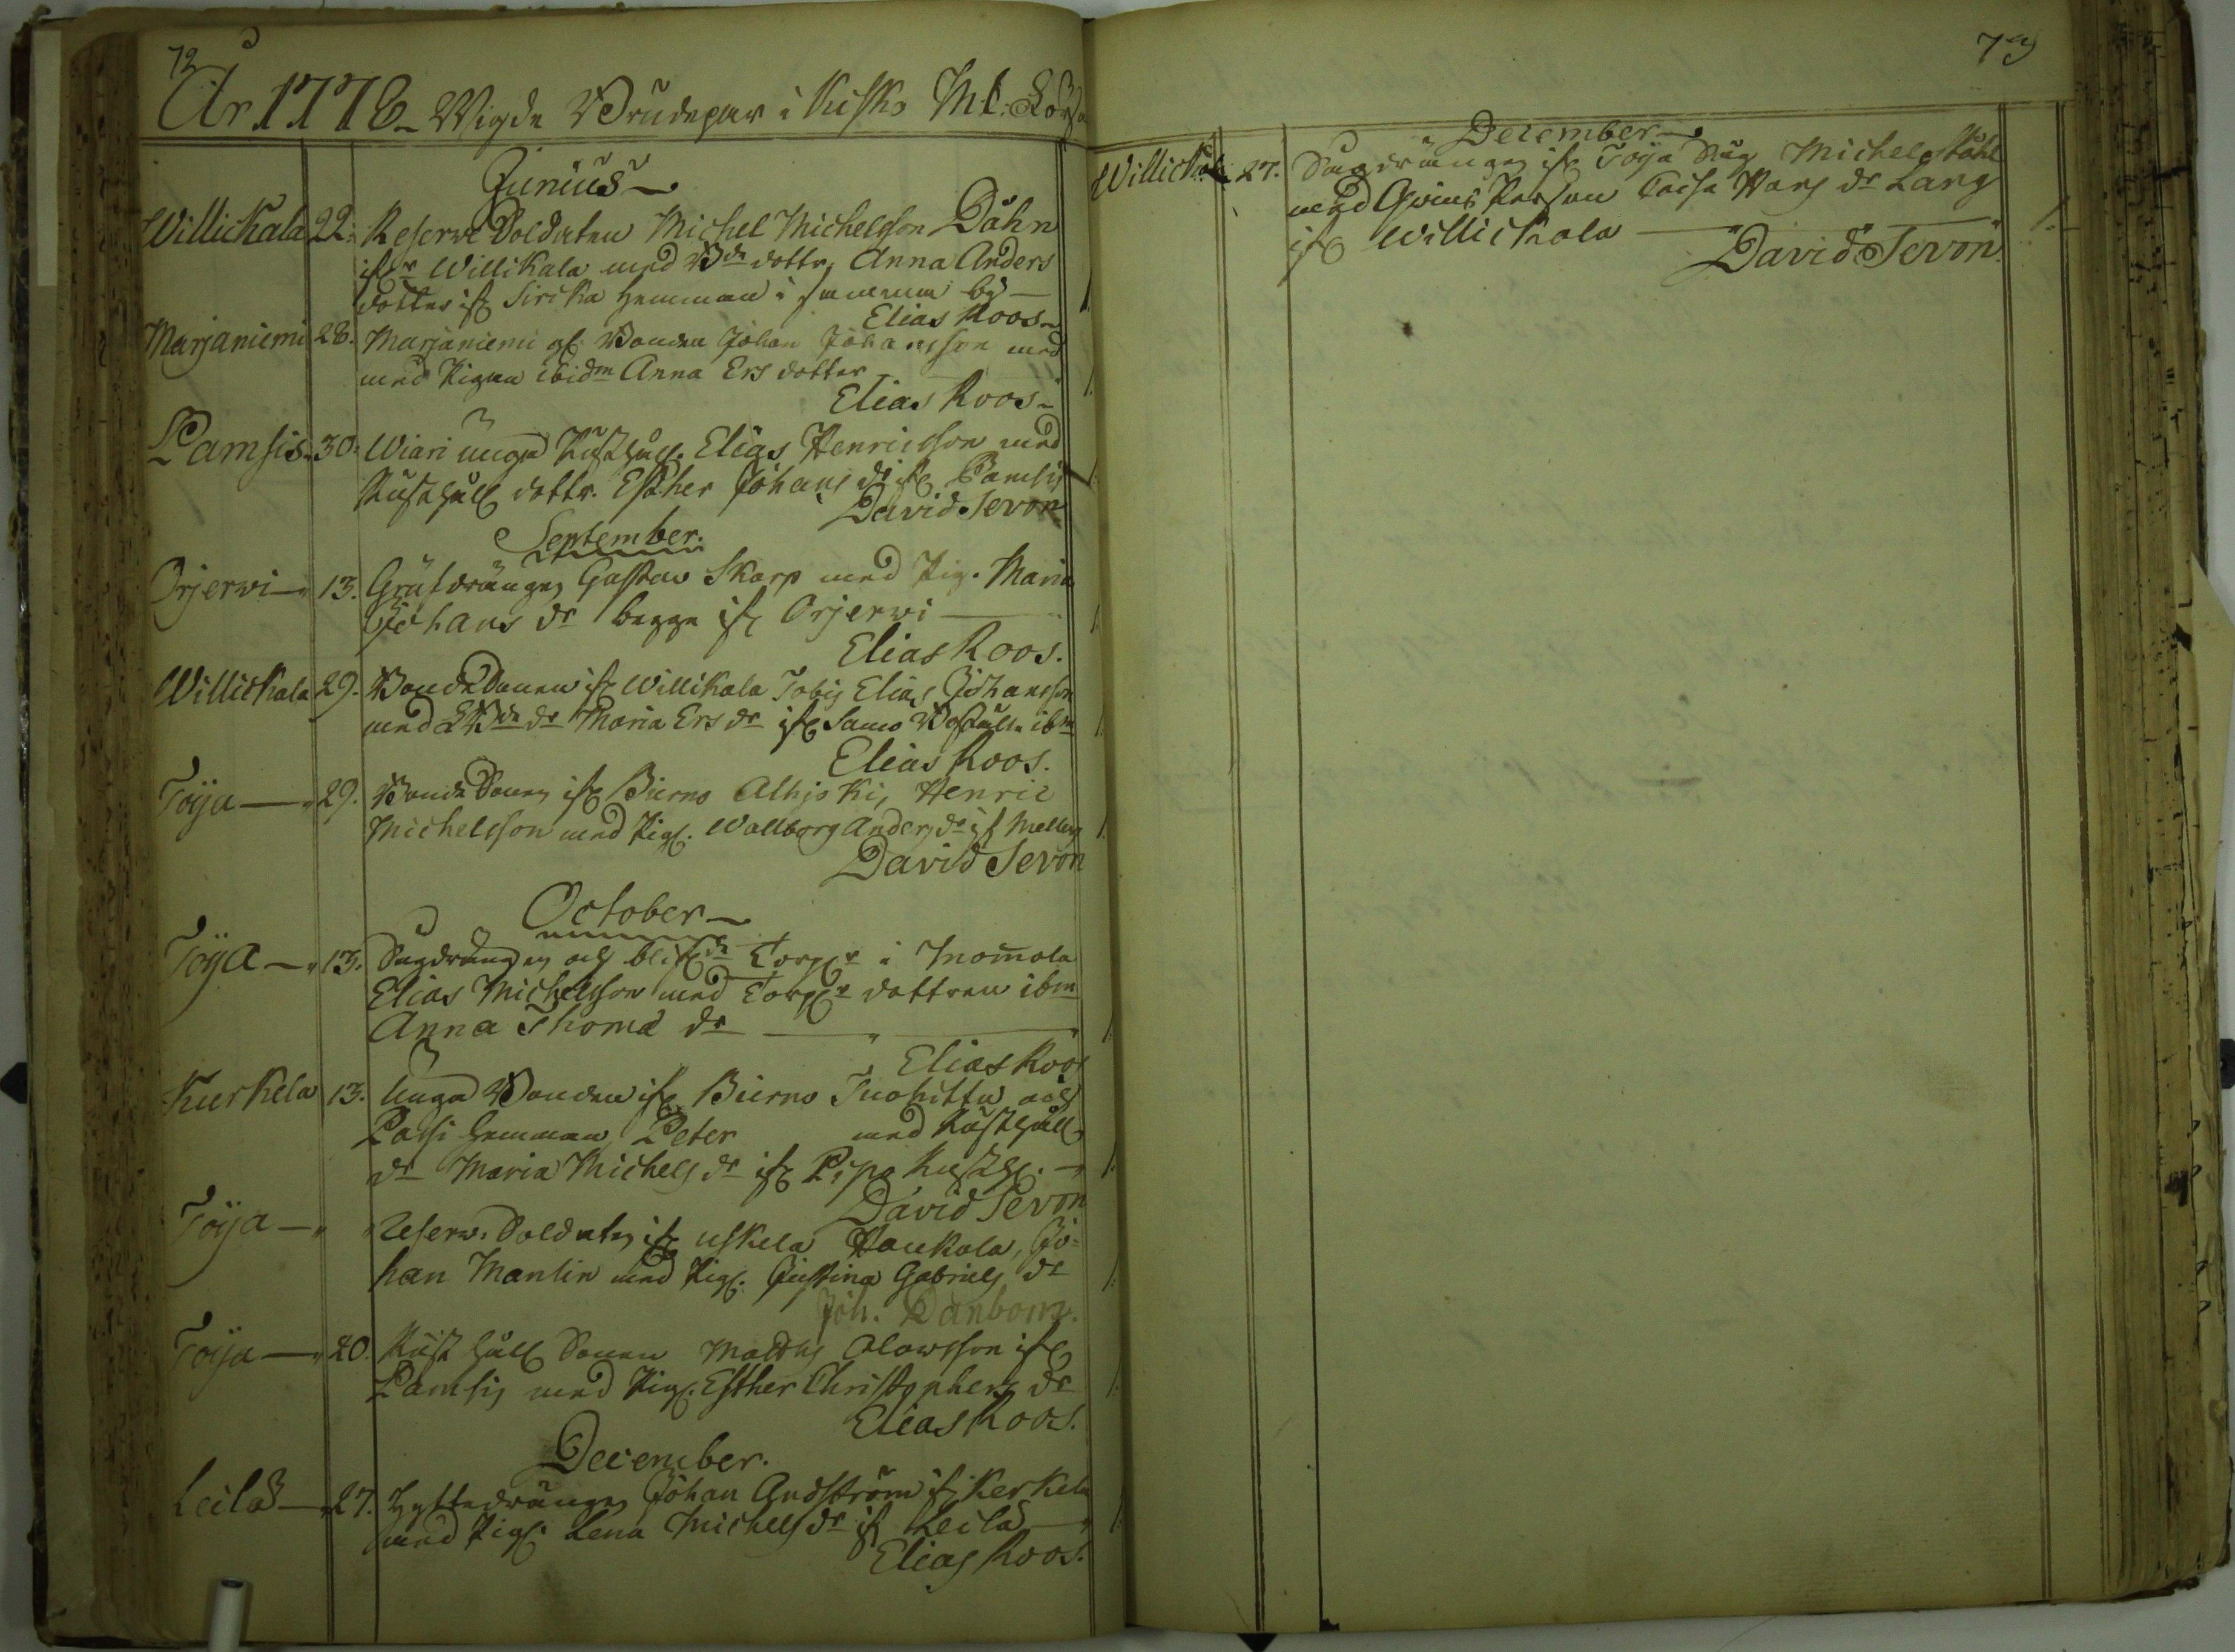 72
År 1778 Wigde Brudepar i Kisko M.C. Förs
Junius
Willickala 22. Reserve Soldaten Michel Michelsson Dåhn
ifr Willikala med Bde dottr. Anna Anders
dotter ifr Sircka hemman i samma by
Elias Roos
Marjaniemi 28. Marjaniemi gl. Bonden Johan Johansson med
med Pigan ibidm Anna Ers dotter
Elias Roos
Pamsis 30. Wiari unga Rusthåll. Elias Henricsson med
Rusthåll dottr. Esther Johans dr ifr Pamsis
David Sevon
September.
Orjerwi 13. Grufdrängen Gustav Skarp med Pig. Maria
Johans dr begge ifr Orjerwi
Elias Roos.
Willickala 29. BondeSonen ifr Willikala Tobis Elias Johansson
med Bde dr Maria Ers dr ifr Samo ibm
Elias Roos.
Toija 29. BondeSonen ifr Bierno Alhjoki, Henric
Michelsson med Pig. Wallborg Anders dr ifr
David Sevon
October
Toija 13. Sugdrängen och blifde Torpr i Inomola
Elias Michelsson med Torpr dottren ibm
Anna Thoma dr
Elias Roos
Kurkela 13. Unga Bonden ifr Bierno Tuohittu och
Passi hemman, Peter med Rusthåll
dr Maria Michels dr ifr Pipo Rusth.
David Sevon
Toija Reserv. Soldaten ifr Uskela Haukola, Jo-
han Manlin med Pig. Justina Gabriels dr
Joh. Danbom.
Toija 20. Rusthåll Sonen Matths Olowsson ifr
Pamsis med Pig. Esther Christophers dr
Elias Roos.
December.
Leilä 27. Hyttedrängen Johan Andström ifr Kerkela
med Pig. Lena Michels dr ifr Leilä
Elias Roos.
73
December
Willickala 27. Sugdrängen ifr Toija Michel Ståhl
med Caisa Hans dr Lang
ifr Willickala
David Sevon.